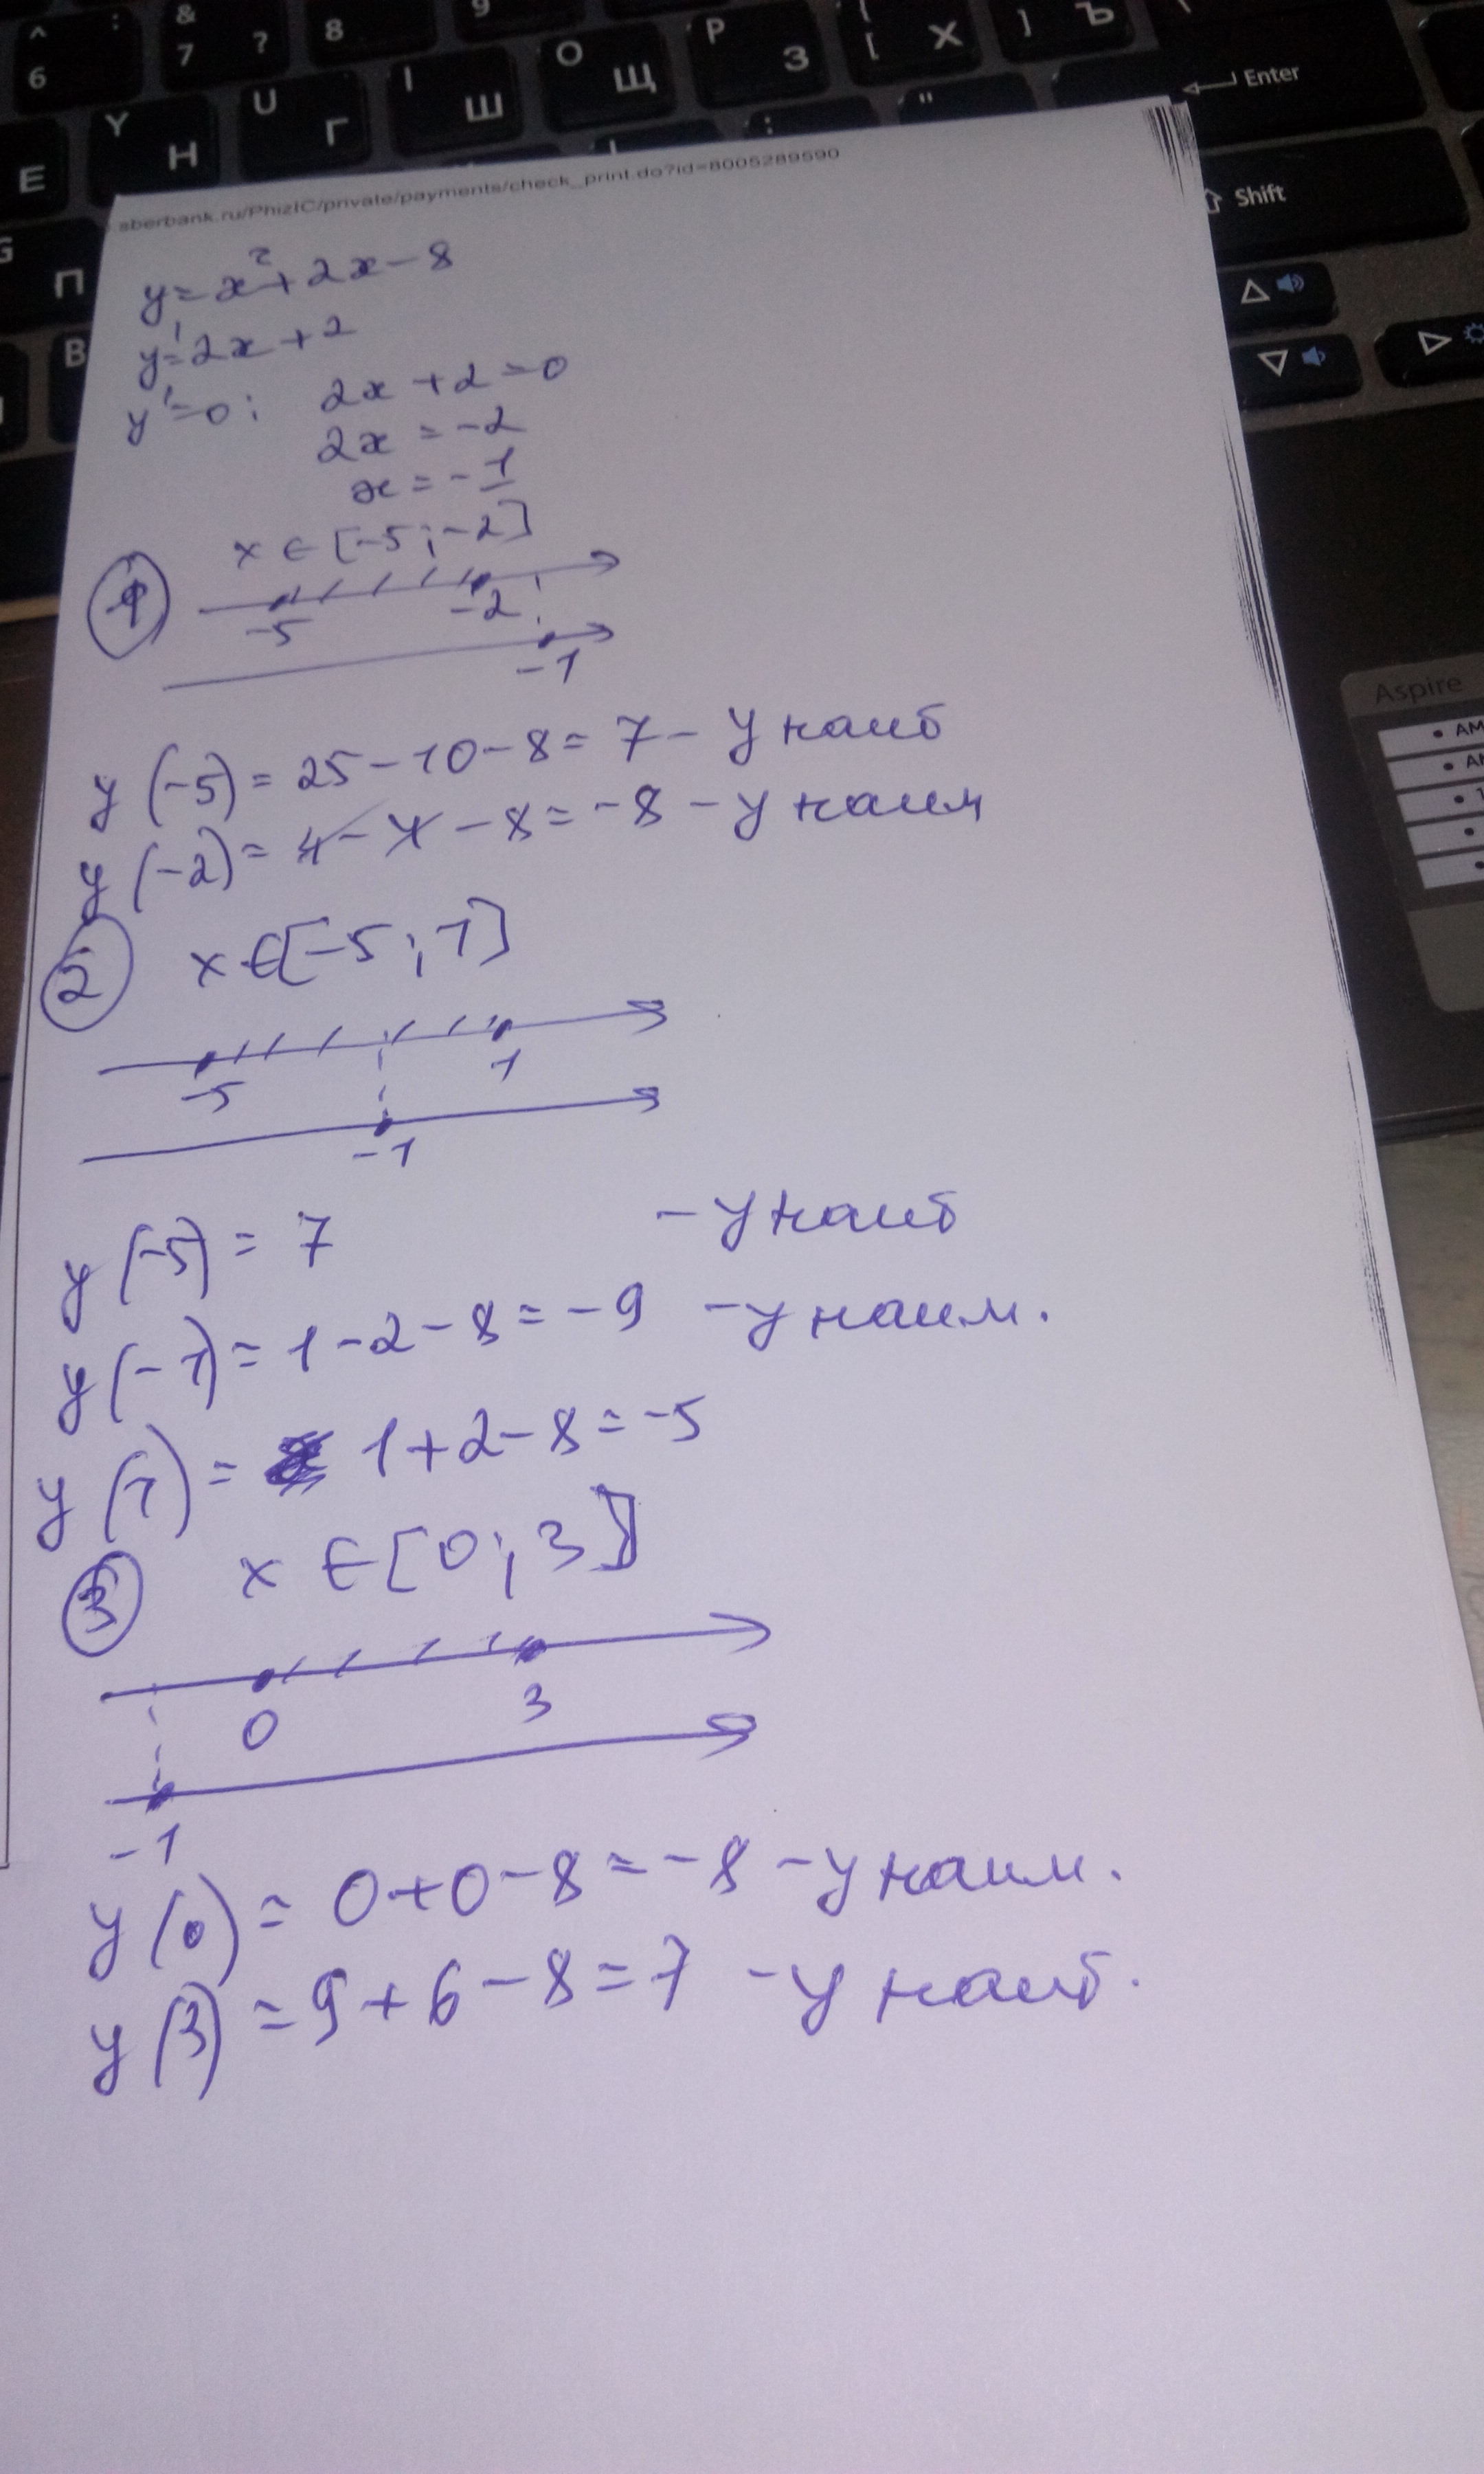 ^ 6
& 7 ?
8
9
: 
E
Y Н
U Г
I Ш
О Щ
P З
{ [ Х
} ] Ъ
"
:
Enter
Shift
G П
B
Aspire
sberbank.ru/PhizIC/private/payments/check_print.do?id=8005289590
y=x²+2x-8
y'=2x+2
y'=0; 2x+2=0
2x=-2
x=-1
① x∈[-5;-2]
-5 -2
-1
y(-5)=25-10-8=7-y наиб
y(-2)=4-4-8=-8-y наим
② x∈[-5;1]
-5 1
-1
y(-5)=7 -y наиб
y(-1)=1-2-8=-9 -y наим.
y(1)= 1+2-8=-5
③ x∈[0;3]
0 3
-1
y(0)=0+0-8=-8-y наим.
y(3)=9+6-8=7 -y наиб.